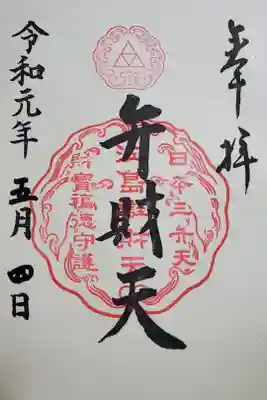 奉拝
日本三弁天
江島弁財天
財寶福徳守護
弁財天
令和元年 五月 四日